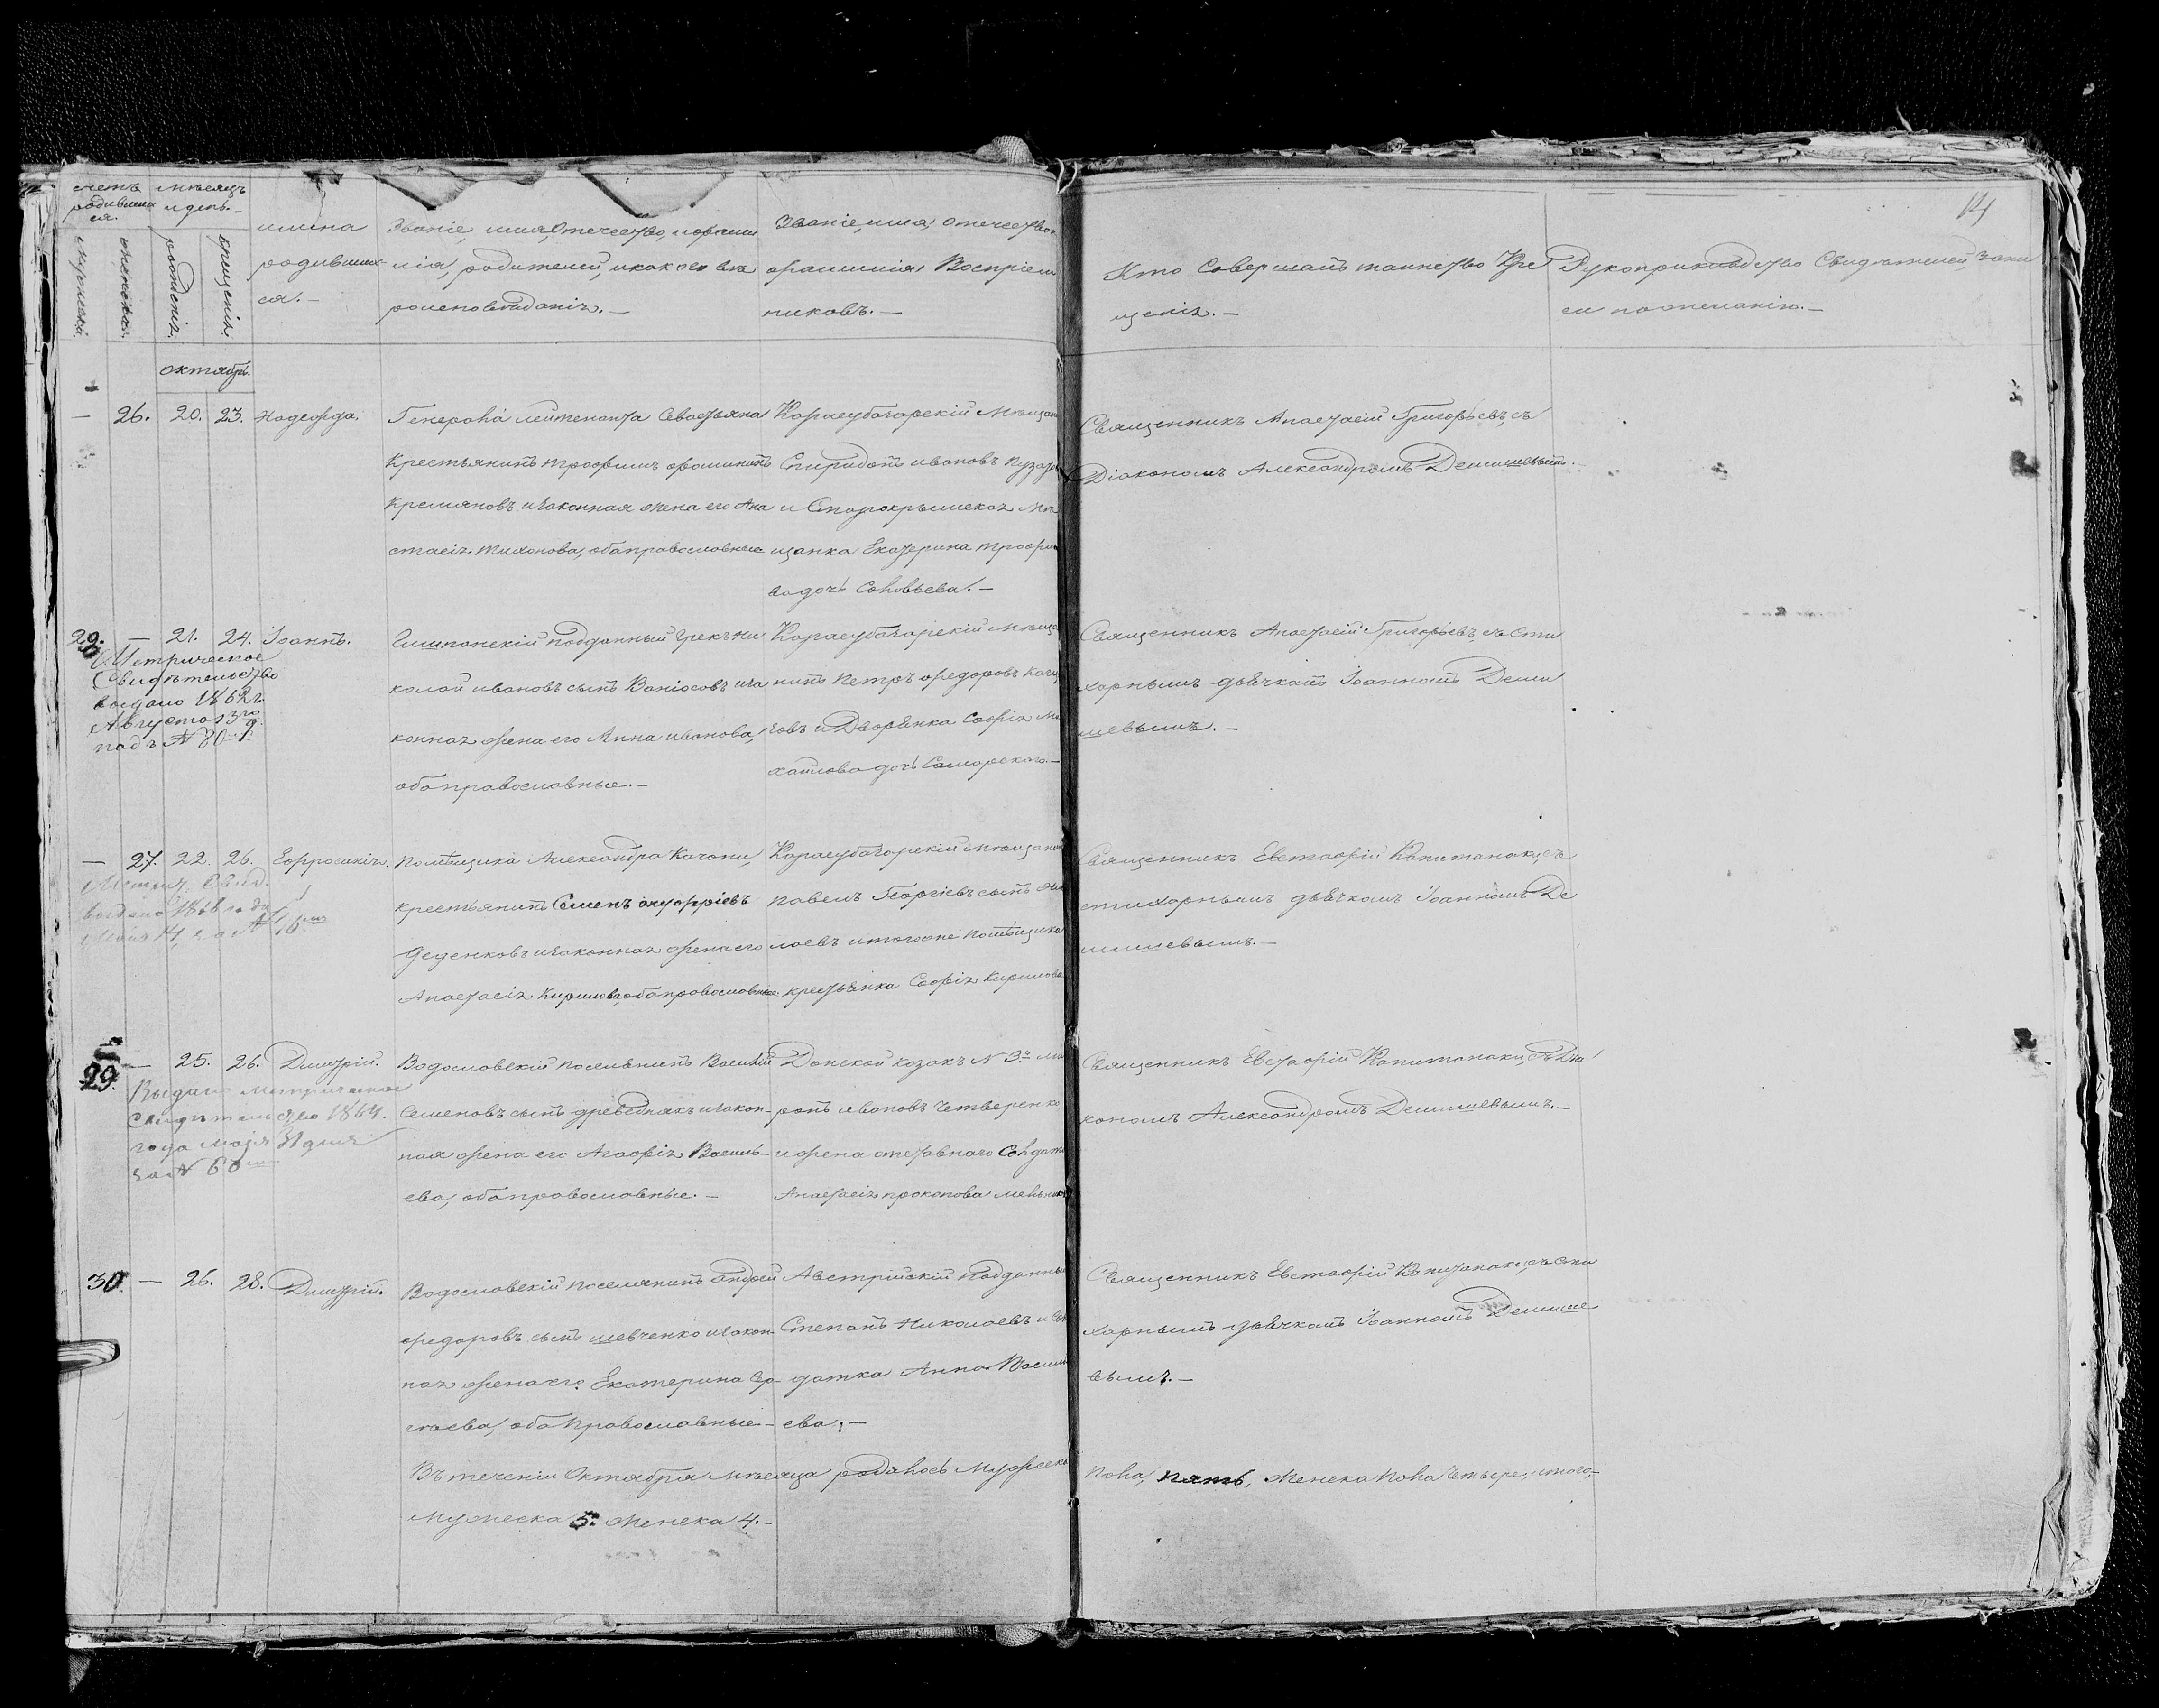 счетъ родившихся.
мѣсяцъ и день.-
мужескій.
женскій.
рожденія.
крещенія.
имена
родивших-
ся.-
Званіе, имя, Отечество, и фами
лія, родителей, и какого вѣ
роисповѣданія.-
Званіе, имя, отечество
фамилія Воспріем
никовъ.-
Кто Совершалъ таинство Кре
щенія.-
Рукоприкладство Свидѣтелей, запи
си по желанію.-
14
октябрь.
— 26. 20. 23. Надежда.
Генерала лейтенанта Севастьяна
Крестьянинъ Трофимъ фоминъ
Кремяновъ и законная жена его Ана
стасія Тихонова, оба православные
Карасубазарскій Мѣщан
Спиридонъ ивановъ
и Старокрымская Мѣ
щанка Екатерина трофимо
ва дочь Соловьева.-
Священникъ Анастасій Григорьевъ, съ
Діакономъ Александромъ Демишевымъ.-
29. — 21. 24. Іоаннъ.
Метрическое
Свидѣтельство
выдано 1862 г.
Августа 13го
подъ № 80
подданный Грекъ Ни
колай ивановъ сынъ Ваніосовъ и за
конная жена его Анна иванова,
оба православные.-
Карасубазарскій Мѣща
нинъ Петръ федоровъ
и Дворянка Софія Ми
хайлова дочь Саморскаго.-
Священникъ Анастасій Григорьевъ, съ Сти
харнымъ дьячкомъ Іоанномъ Деми
шевымъ.-
— 27. 22. 26. Ефросинія.
Метрич. Свид.
выдано 1868 года
Мая 14, за № 16
помѣщика Александра Качони,
крестьянинъ Семенъ онуфріевъ
Деденковъ и законная жена его
Анастасія Кирилова, оба православные
Карасубазарскій мѣщанин
павелъ Георгіевъ сынъ
лаевъ и тогоже помѣщика
крестьянка Софія Кирилова
Священникъ Евстафій Капитанаки, съ
стихарнымъ дьячкомъ Іоанномъ Де
мишевымъ.-
29. — 25. 26. Димитрій.
Выдано метрическое
Свидѣтельство 1864.
года мая 31 дня
за № 60
Богословскій поселянинъ Василій
Семеновъ сынъ дребеднякъ и закон-
ная жена его Агафія Василь-
ева, оба православные.-
Донской козакъ № 3го Ми
ронъ ивановъ Четверенко
и жена отставнаго Солдата
Анастасія прокопова мельник
Священникъ Евстафій Капитанаки, съ Діа
кономъ Александромъ Демишевымъ.-
30. — 26. 28. Димитрій.
Богословскій поселянинъ андрей
федоровъ сынъ шевченко и закон-
ная жена его Екатерина Ер-
стаева, оба православные-
Австрійскій подданны
Степанъ Николаевъ и Сол
датка Анна Василь
ева.-
Священникъ Евстафій Капитанаки, съ Сти
харнымъ дьячкомъ Іоанномъ Демише
вымъ.-
Въ теченіи Октября мѣсяца родилось Мужеска
пола, пять, Женска пола Четыре, итого,-
Мужеска 5. Женска 4.-